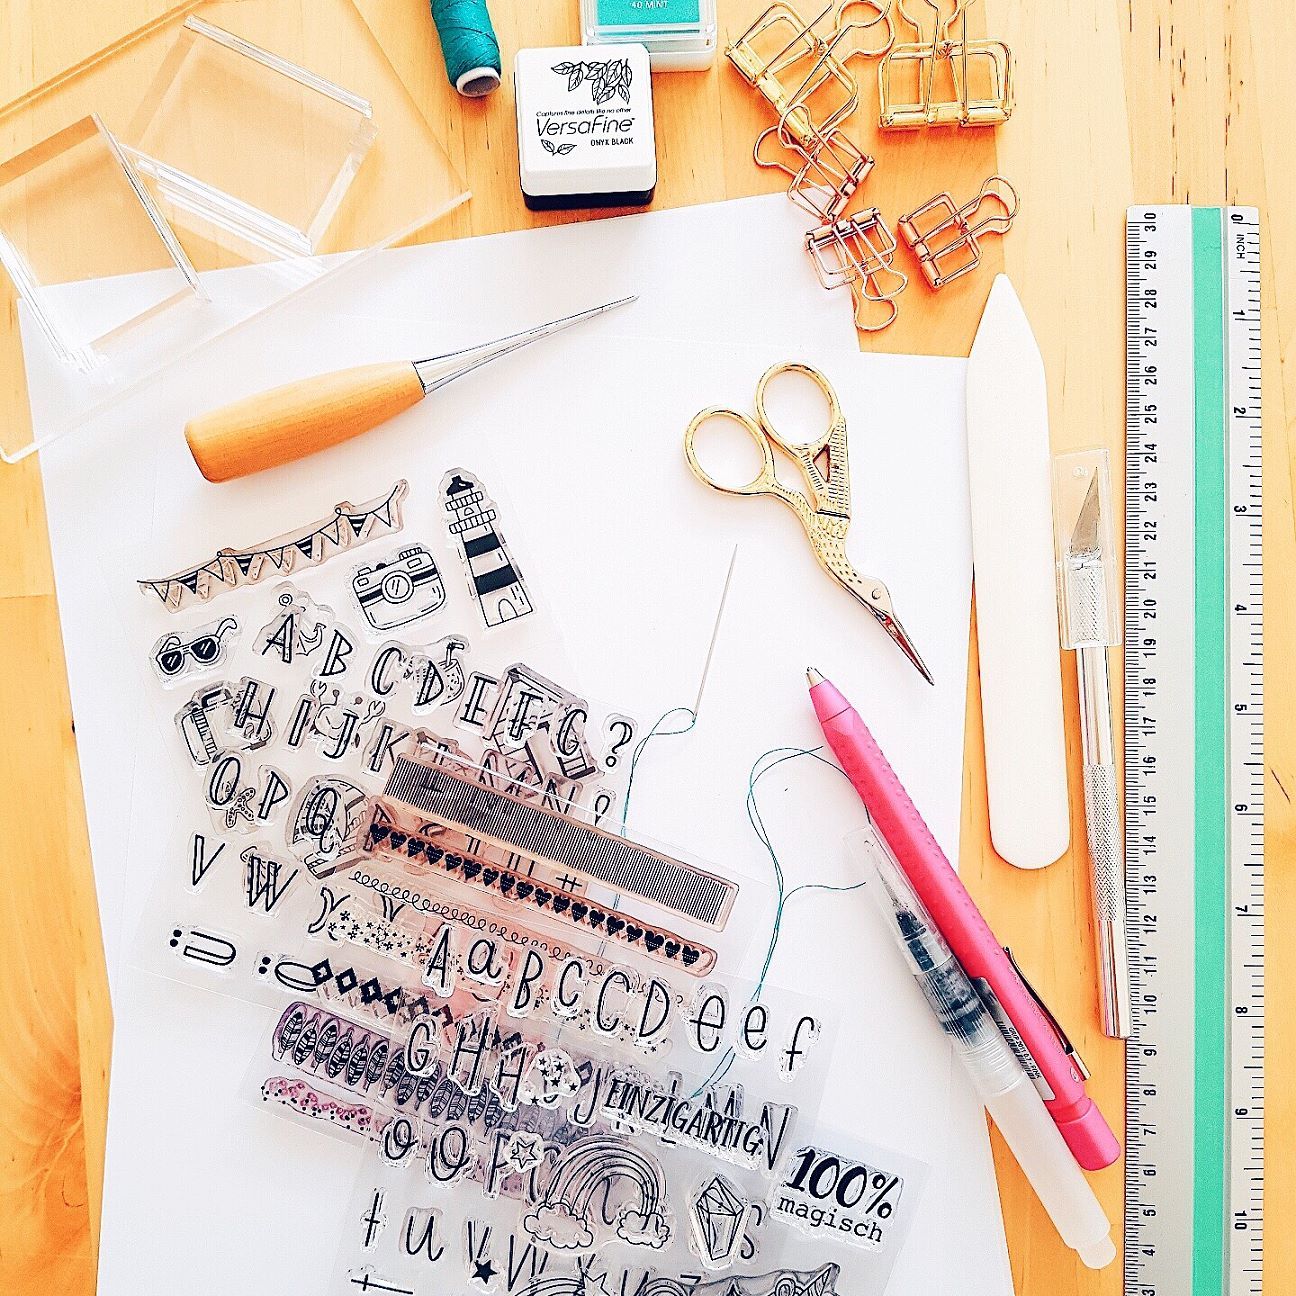 40 MINT
Capture fine details like no other
VersaFine
ONYX BLACK
INCH
0
1
2
3
4
5
6
7
8
9
10
30
29
28
27
26
25
24
23
22
21
20
19
18
17
16
15
14
13
12
11
10
9
8
7
6
5
4
3
A B C D E F G ?
H I J K
O P Q
V W X Y
#
A a B C C D e e f
G H H
EINZIGARTIG
M N
o O P
100%
magisch
t u v W